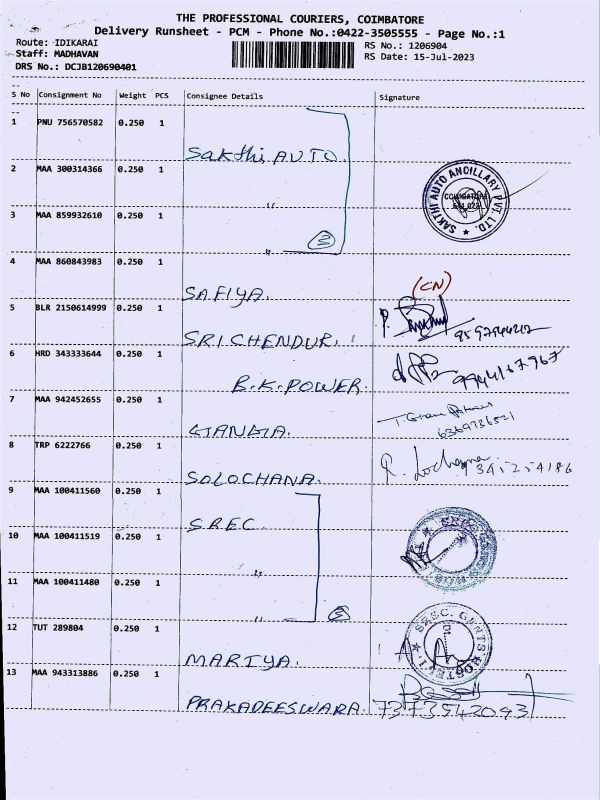 THE PROFESSIONAL COURIERS, COIMBATORE
Delivery Runsheet - PCM - Phone No.:0422-3505555 - Page No.:1
Route: IDIKARAI
RS No.: 1206904
Staff: MADHAVAN
RS Date: 15-Jul-2023
DRS No.: DCJB120690401
S No Consignment No Weight PCS Consignee Details Signature
1 PNU 756570582 0.250 1 Sakthi AUTO.
2 MAA 300314366 0.250 1 "
SAKTHI AUTO ANCILLARY PVT. LTD.
COIMBATORE
3 MAA 859932610 0.250 1 "
3
4 MAA 860843983 0.250 1 SAFIYA.
(CN)
5 BLR 2150614999 0.250 1 SRICHENDUR.
6 HRD 343333644 0.250 1 B.K.POWER.
9944167967
7 MAA 942452655 0.250 1
6369736521
8 TRP 6222766 0.250 1 SOLOCHANA.
9 MAA 100411560 0.250 1 SREC
10 MAA 100411519 0.250 1 "
11 MAA 100411480 0.250 1 "
3
12 TUT 289804 0.250 1 MARIYA.
13 MAA 943313886 0.250 1 PRAKADEESWARA. 7373542043